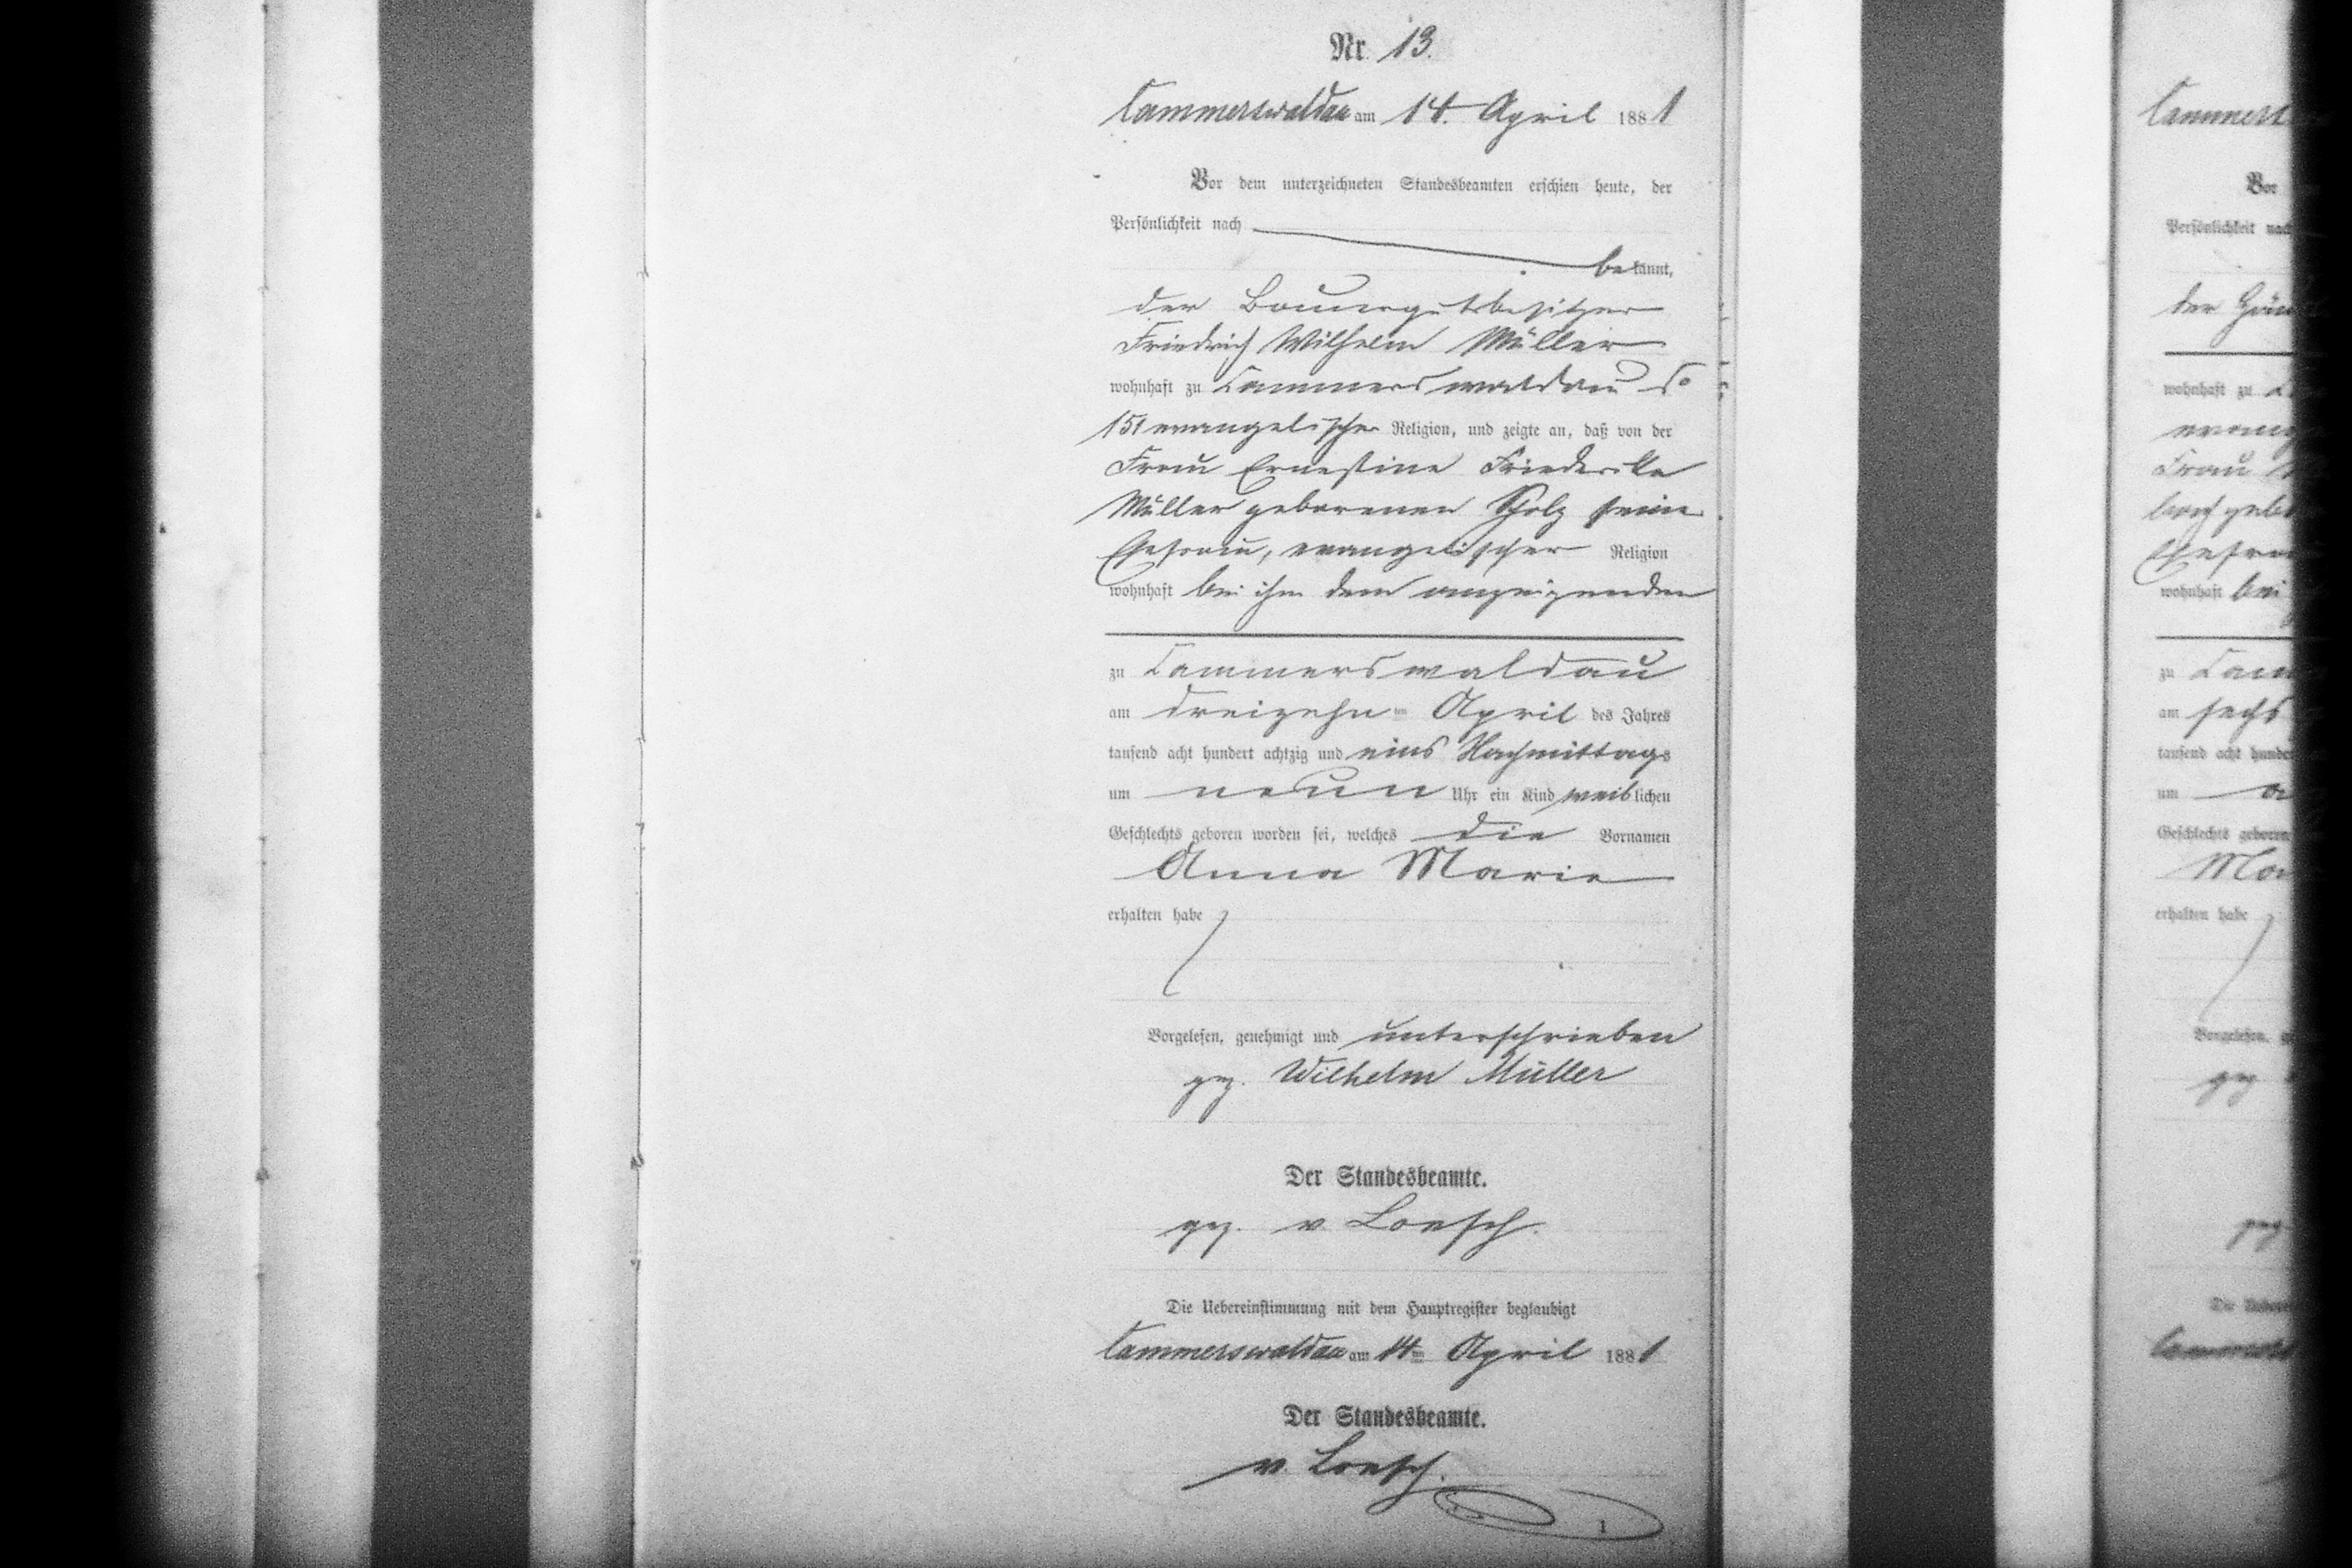 Nr. 13.
Cammerswaldau am 14. April 1881
Vor dem unterzeichneten Standesbeamten erschien heute, der
Persönlichkeit nach
bekannt,
der Bauergutsbesitzer
Friedrich Wilhelm Müller
wohnhaft zu Cammerswaldau No
151 evangelischer Religion, und zeigte an, daß von der
Frau Ernestine Friederike
Müller geborenen Scholz seine
Ehefrau, evangelischer Religion
wohnhaft bei ihm dem anzeigenden
zu Cammerswaldau
am dreizehnten April des Jahres
tausend acht hundert achtzig und eins Nachmittags
um neun Uhr ein Kind weiblichen
Geschlechts geboren worden sei, welches die Vornamen
Anna Marie
erhalten habe
Vorgelesen, genehmigt und unterschrieben
gez. Wilhelm Müller
Der Standesbeamte.
gez. v Loesch.
Die Uebereinstimmung mit dem Hauptregister beglaubigt
Cammerswaldau am 14ten April 1881
Der Standesbeamte.
v. Loesch.
1
Cammers
Vor
Persönlichkeit nach
der
wohnhaft zu
Frau
wohnhaft bei
zu Cam
am sechs
tausend acht hunder
um
Geschlechts geboren
Ma
erhalten habe
Vorgelesen, g
gez
gez
Die Ueberei
Cammers